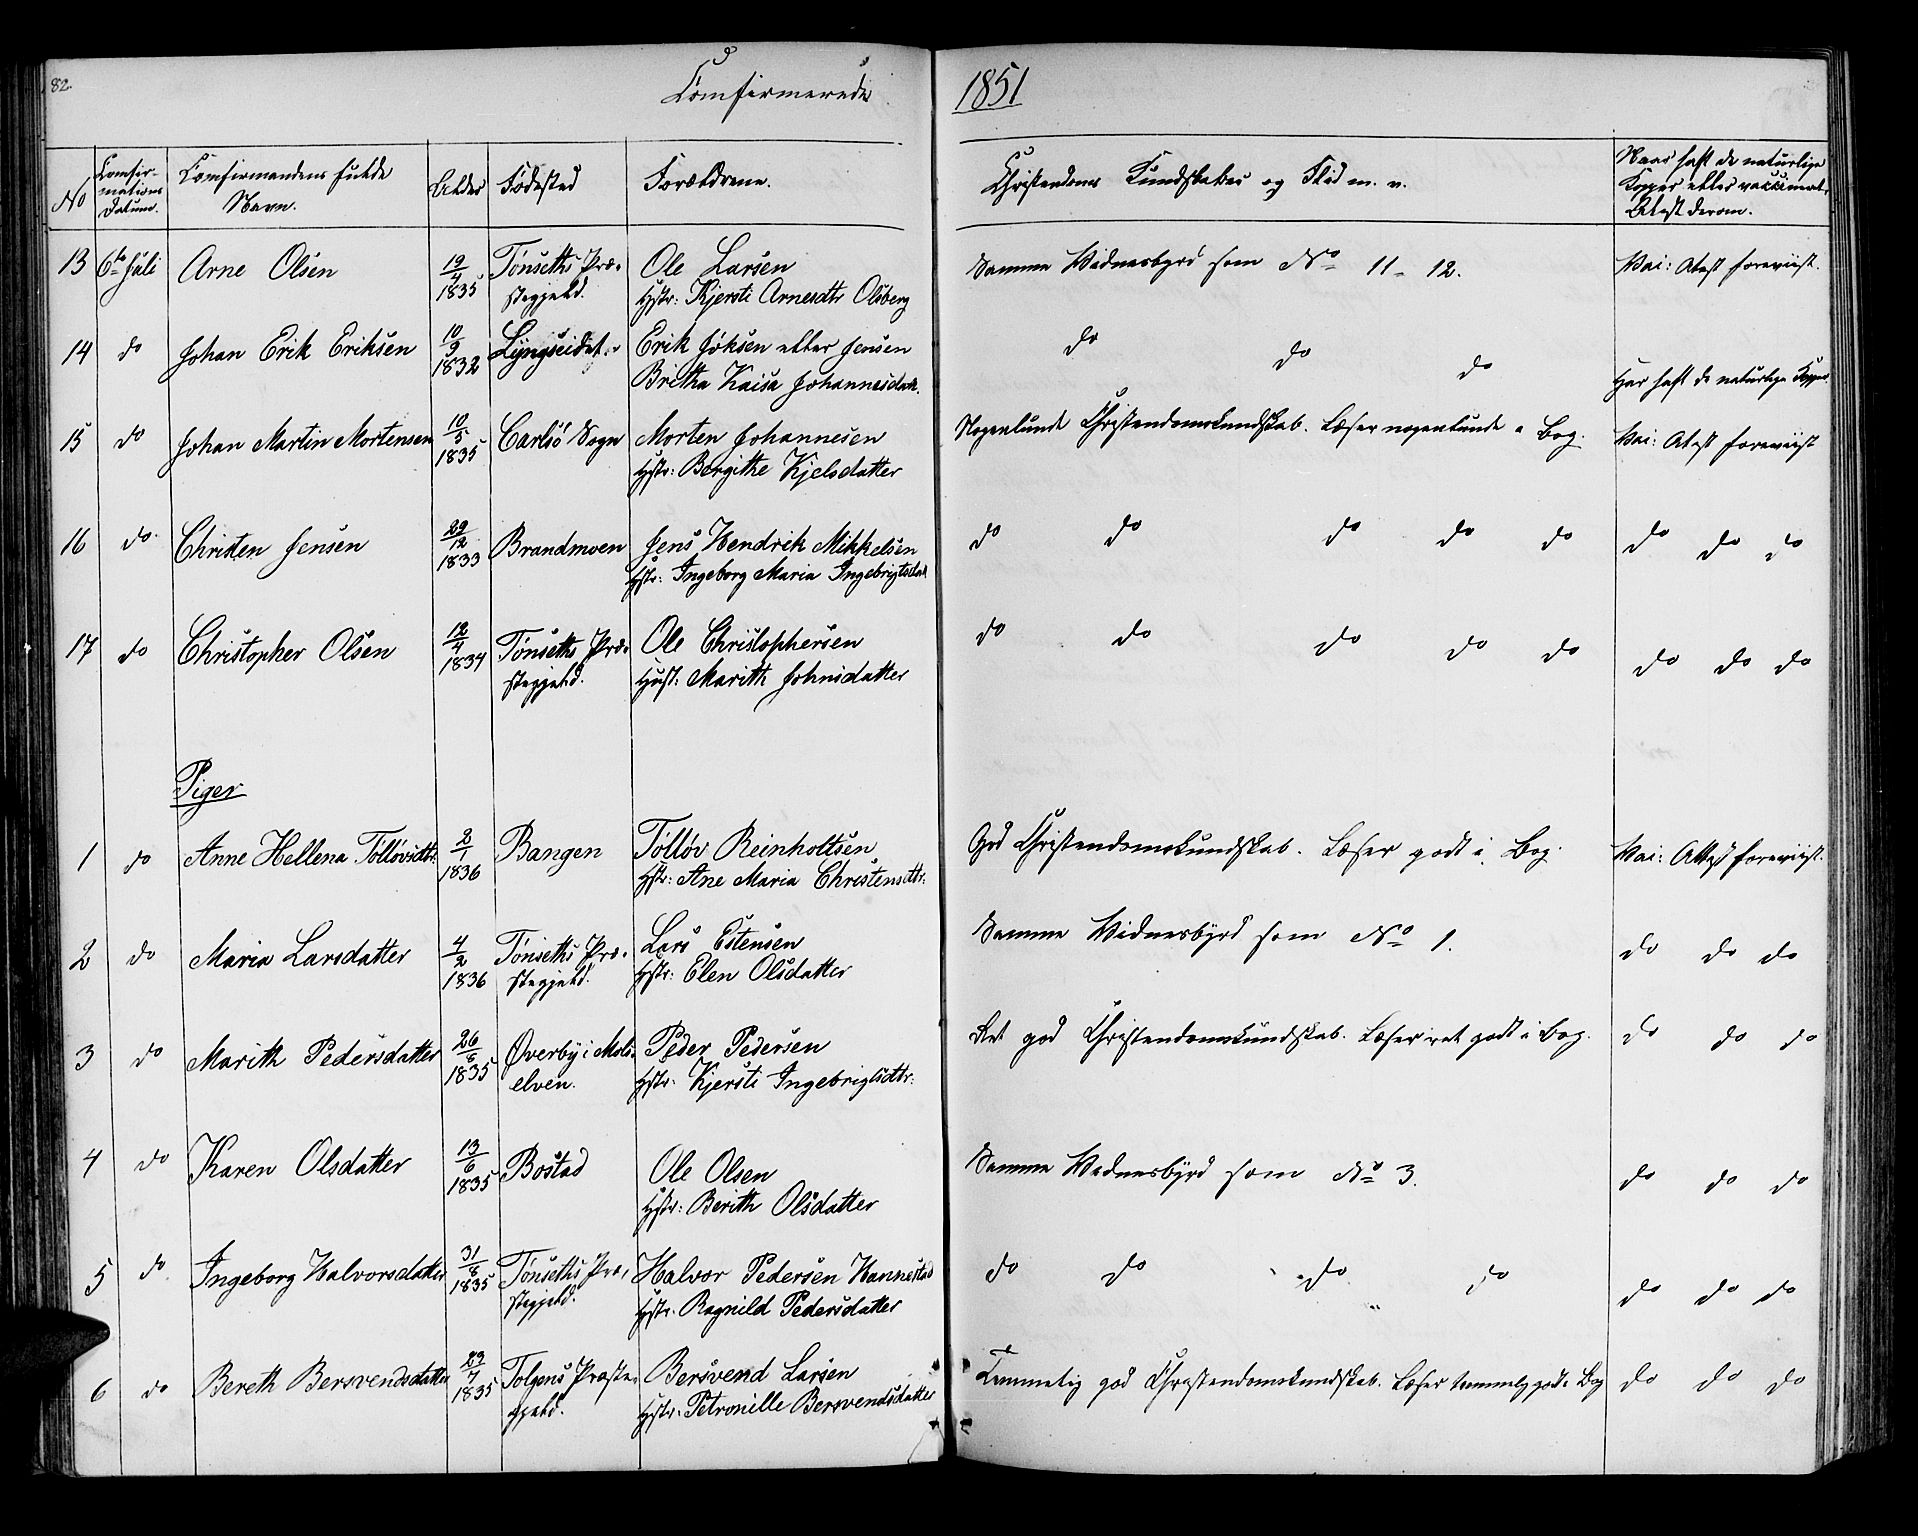 82.
Confirmerede 1851
No
Confir-
mations
Datum.
Confirmandens fulde
Navn.
Alder
Fødested
Forældrene.
Christendoms Kundskaber og Flid m. v.
Naar haft de naturlige
Kopper eller vaccineret,
Atest derom.
13 6te Juli Arne Olsen 19/4 1835 Tønseths Præ-
stegjeld.
Ole Larsen
Hstr: Kjersti Arnesdtr Olsberg
Samme Vidnesbyrd som No 11 - 12. Vai: Atest foreviist.
14 do Johan Erik Eriksen 10/9 1832 Lyngseidet Erik Joksen eller Jensen
Britha Kaisa Johannesdatr.
do do do Har haft de naturlige Kopper
15 do Johan Martin Mortensen 10/5 1835 Carlsö Sogn Morten Johannesen
Hstr: Bergithe Kjelsdatter
Nogenlunde Christendomskundskab. Læser nogenlunde i Bog. Vai: Atest foreviist
16 do Christen Jensen 29/12 1833 Brandmoen Jens Hendrik Mikkelsen
Hstr: Ingeborg Maria Ingebrigtsdatr
do do do do do do do do
17 do Christopher Olsen 12/4 1834 Tönseths Præ-
stegjeld.
Ole Christophersen
Hust: Marith Johnsdatter
do do do do do do do do
Piger
1 do Anne Hellena Tølløvsdtr. 2/1 1836 Bangen Tølløv Reinholtsen
Hstr: Ane Maria Christensdtr:
God Christendomskundskab. Læser godt i Bog. Vai: Attest foreviist.
2 do Maria Larsdatter 4/2 1836 Tönseths Præ-
stegjeld.
Lars Estensen
Hstr: Elen Olsdatter
Samme Vidnesbyrd som No 1. do do do
3 do Marith Pedersdatter 26/8 1835 Øverby i Mols-
elven.
Peder Pedersen
Hstr: Kjersti Ingebrigtsdtr:
Ret god Christendomskundskab. Læser ret godt i Bog. do do do
4 do Karen Olsdatter 13/6 1835 Bostad Ole Olsen
Hstr: Berith Olsdatter
Samme Vidnesbyrd som No 3. do do do
5 do Ingeborg Halvorsdatter 31/8 1835 Tönseths Præ-
stegjeld.
Halvor Pedersen Hannestad
Hstr: Ragnild Pedersdatter
do do do do do do do
6 do Bereth Bersvendsdatter 23/7 1835 Tolgens Præste-
gjeld.
Bersvend Larsen
Hstr: Petronille Bersvendsdatter
Temmelig god Christendomskundskab. Læser temmelig godt i Bog do do do